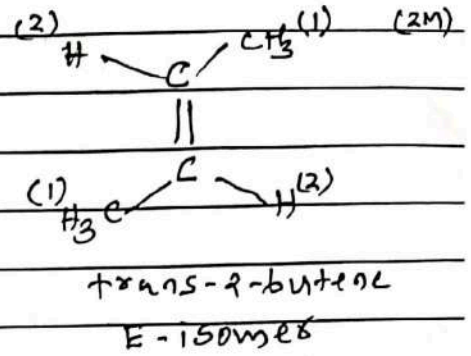 (2) H CH3 (1) (2M)
C
||
C
(1) H3C H (2)
trans-2-butene
E-isomer